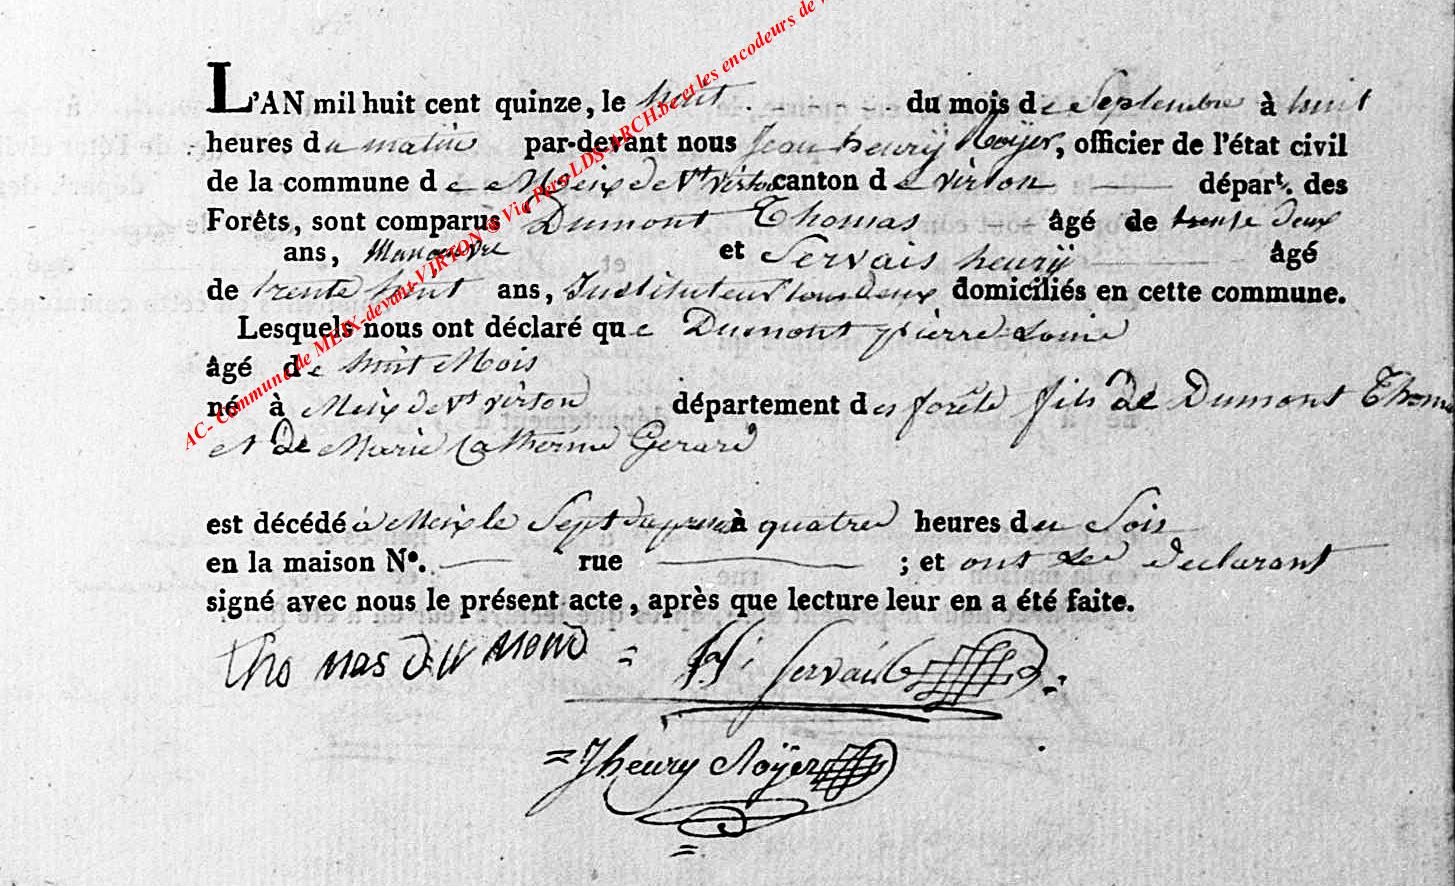 L'AN mil huit cent quinze, le huit du mois de Septembre à huit
heures du matin par-devant nous Jean henrÿ Roÿer, officier de l'état civil
de la commune de Meix de Vt Virton canton de virton départ. des
Forêts, sont comparus Dumont Thomas âgé de trente deux
ans, Manoeuvre et Servais henrÿ âgé
de trente huit ans, Instituteur tous deux domiciliés en cette commune.
Lesquels nous ont déclaré que Dumont pierre Louis
âgé de huit Mois
né à Meix de Vt virton département des forêts fils de Dumont Thomas
et de Marie Catherine Gerard
est décédé à Meix le Sept du present à quatre heures du Soir
en la maison N°. rue ; et ont les declarant
signé avec nous le présent acte, après que lecture leur en a été faite.
thomas dumond = h servais
= J henry Roÿer
=
AC- Commune de MEIX-devant-VIRTON © Via Pers LDS-ARCH.be et les encodeurs de